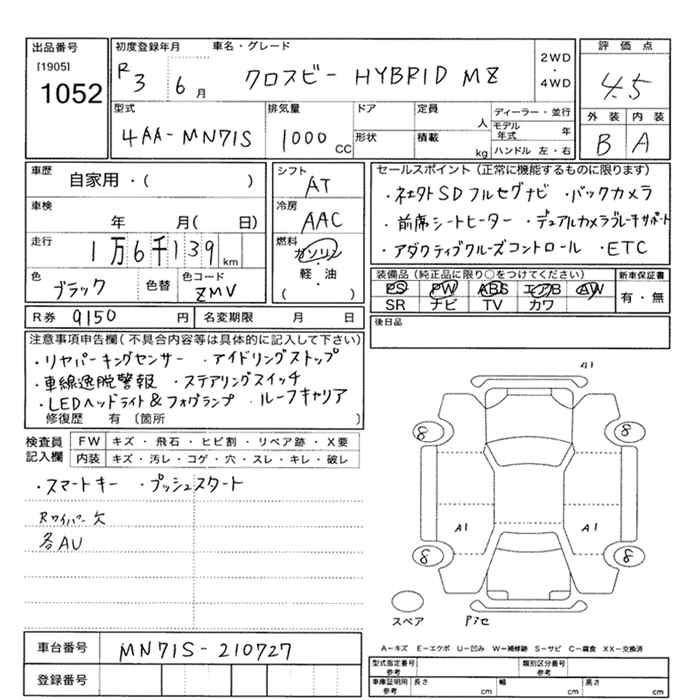 出品番号
[1905]
1052
初度登録年月
R3 6月
車名・グレード
クロスビー HYBRID MZ
2WD
・
4WD
評価点
4.5
外装 内装
B A
型式
4AA-MN71S
排気量
1000 CC
ドア
形状
定員 人
積載 kg
ディーラー・並行
モデル年式 年
ハンドル 左・右
車歴
自家用・( )
車検
年 月( 日)
走行
1万6千139 km
色
ブラック
色替
色コード
ZMV
シフト
AT
冷房
AAC
燃料
ガソリン
・
軽・油
( )
セールスポイント(正常に機能するものに限ります)
・社外SDフルセグナビ ・バックカメラ
・前席シートヒーター ・デュアルカメラブレーキサポート
・アダクティブクルーズコントロール ・ETC
装備品(純正品に限り○をつけてください)
PS PW ABS エアB AW
SR ナビ TV カワ
新車保証書
有・無
R券 9150 円
名変期限 月 日
後日品
注意事項申告欄(不具合内容等は具体的に記入して下さい)
・リヤパーキングセンサー ・アイドリングストップ
・車線逸脱警報 ・ステアリングスイッチ
・LEDヘッドライト&フォグランプ ・ルーフキャリア
修復歴 有(箇所 )
検査員記入欄
FW キズ・飛石・ヒビ割・リペア跡・X要
内装 キズ・汚レ・コゲ・穴・スレ・キレ・破レ
・スマートキー ・プッシュスタート
Rワイパー欠
各AU
A1
8 8
A1 A1
8 8
スペア
車台番号
MN71S-210727
登録番号
A−キズ E−エクボ U−凹み W−補修跡 S−サビ C−腐食 XX−交換済
型式指定番号
参考
類別区分番号
参考
車庫証明用
参考
長さ cm
幅 cm
高さ cm